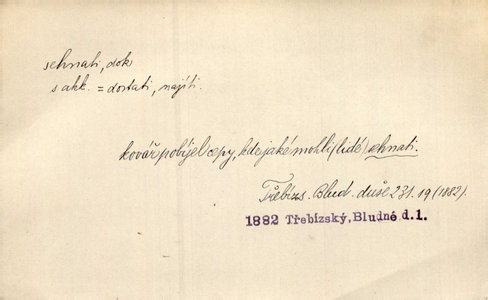 sehnati, dok
s akk. = dostati, najíti.
kovář pobíjel cepy, kde jaké mohli (lidé) sehnati.
Třebízs. Blud. duše 231.19 (1882).
1882 Třebízský, Bludné d.1.